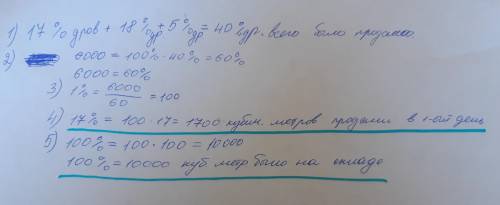 1) 17% дров + 18% др + 5% др = 40% др. всего было продано.
2) 6000 = 100% · 40% = 60%
6000 = 60%
3) 1% = 6000/60 = 100
4) 17% = 100 · 17 = 1700 кубич. метров продали в 1-ый день
5) 100% = 100 · 100 = 10000
100% = 10000 куб метр было на складе